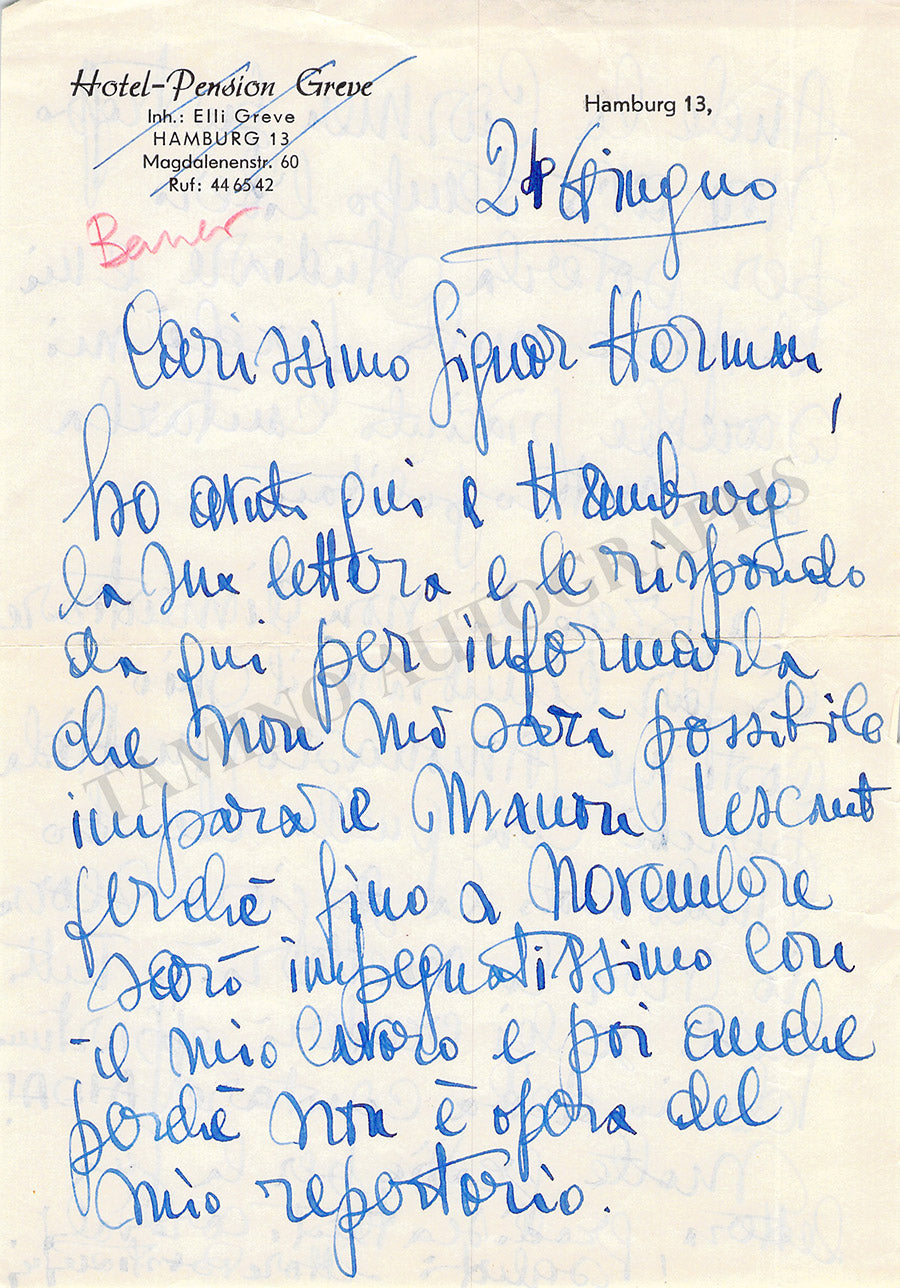 Hotel-Pension Greve
Inh.: Elli Greve
HAMBURG 13
Magdalenenstr. 60
Ruf: 44 65 42
Hamburg 13,
Giugno
Carissimo Signor Herman,
ho avuto qui a Hamburg
la sua lettera e le rispondo
da qui per informarla
che non mi sarà possibile
imparare Manon Lescaut
perchè fino a Novembre
sarò impegnatissimo con
il mio lavoro e poi anche
perchè non è opera del
mio repertorio.
TAMINO AUTOGRAPHS